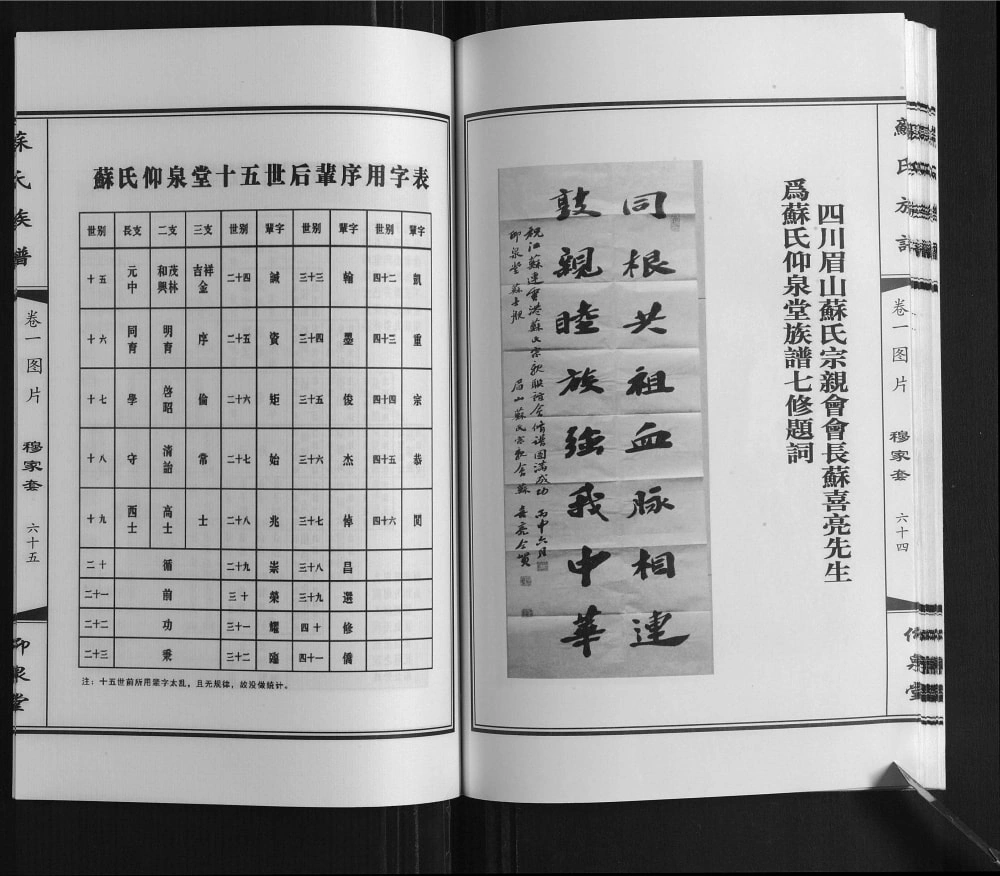 四川眉山蘇氏宗親會會長蘇喜亮先生
爲蘇氏仰泉堂族譜七修題詞
同根共祖血脉相連
敦親睦族強我中華
祝江蘇連雲港蘇氏宗親聯誼會脩譜圆滿成功 丙申六月
仰泉堂
眉山蘇氏宗親會 蘇喜亮仝賀
蘇氏族譜
卷一图片
穆家套
六十四
仰泉堂
蘇氏仰泉堂十五世后輩序用字表
世别 長支 二支 三支 世别 輩字 世别 輩字 世别 輩字
十五 元中 和興 茂林 吉金 祥 二十四 誠 三十三 翰 四十二 凱
十六 同育 明育 序 二十五 資 三十四 墨 四十三 重
十七 學 啓昭 倫 二十六 矩 三十五 俊 四十四 宗
十八 守 清詒 常 二十七 始 三十六 杰 四十五 恭
十九 西士 高士 士 二十八 兆 三十七 倬 四十六 閔
二十 循 二十九 崇 三十八 昌
二十一 前 三十 榮 三十九 選
二十二 功 三十一 耀 四十 修
二十三 秉 三十二 臨 四十一 僑
注：十五世前所用輩字太乱，且无规律，故没做统计。
蘇氏族譜
卷一图片
穆家套
六十五
仰泉堂